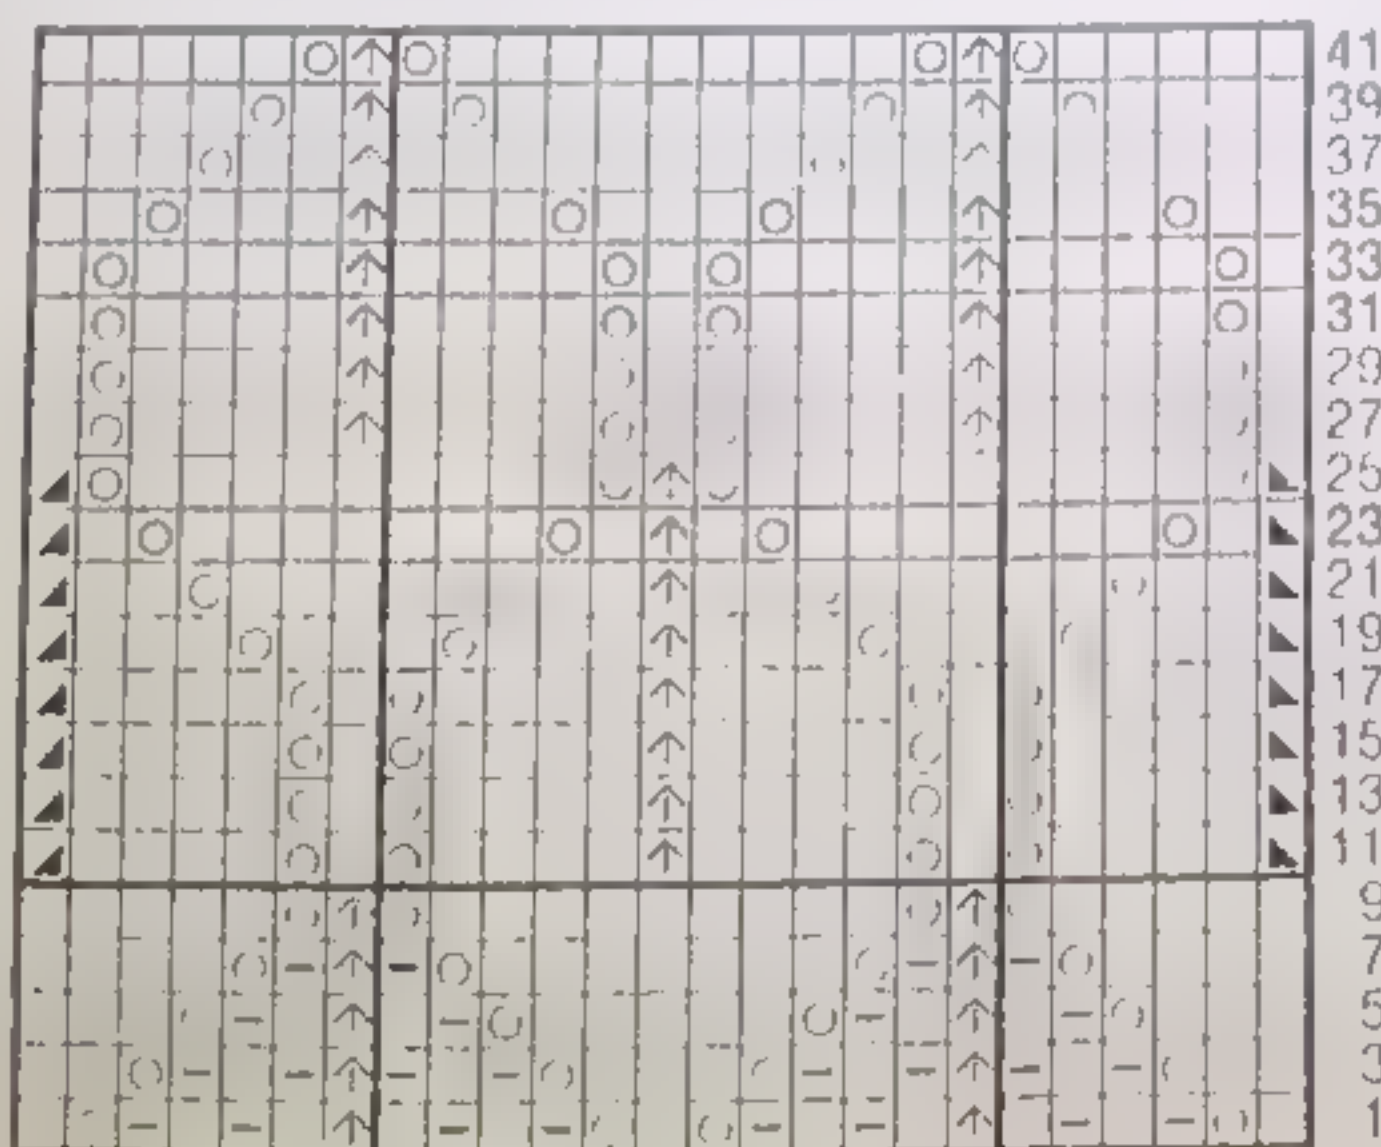 41
39
37
35
33
31
29
27
25
23
21
19
17
15
13
11
9
7
5
3
1